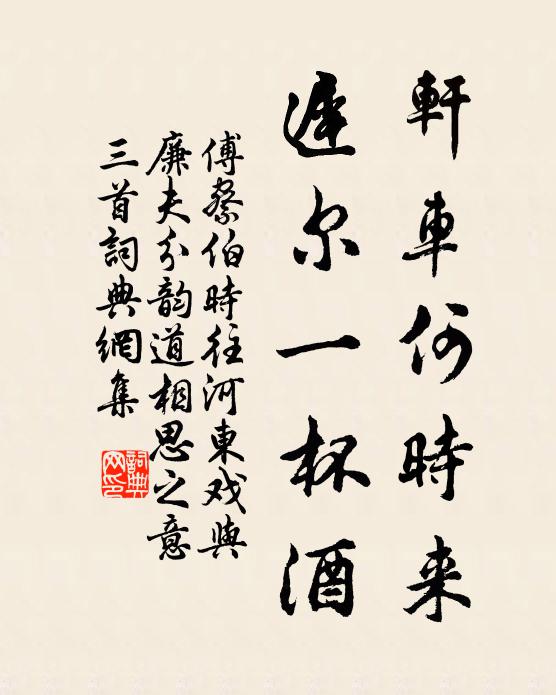 軒車何時来
遲尔一杯酒
傅祭伯時往河東戏與
廉夫分韵道相思之意
三首詞典網集
詞典网印